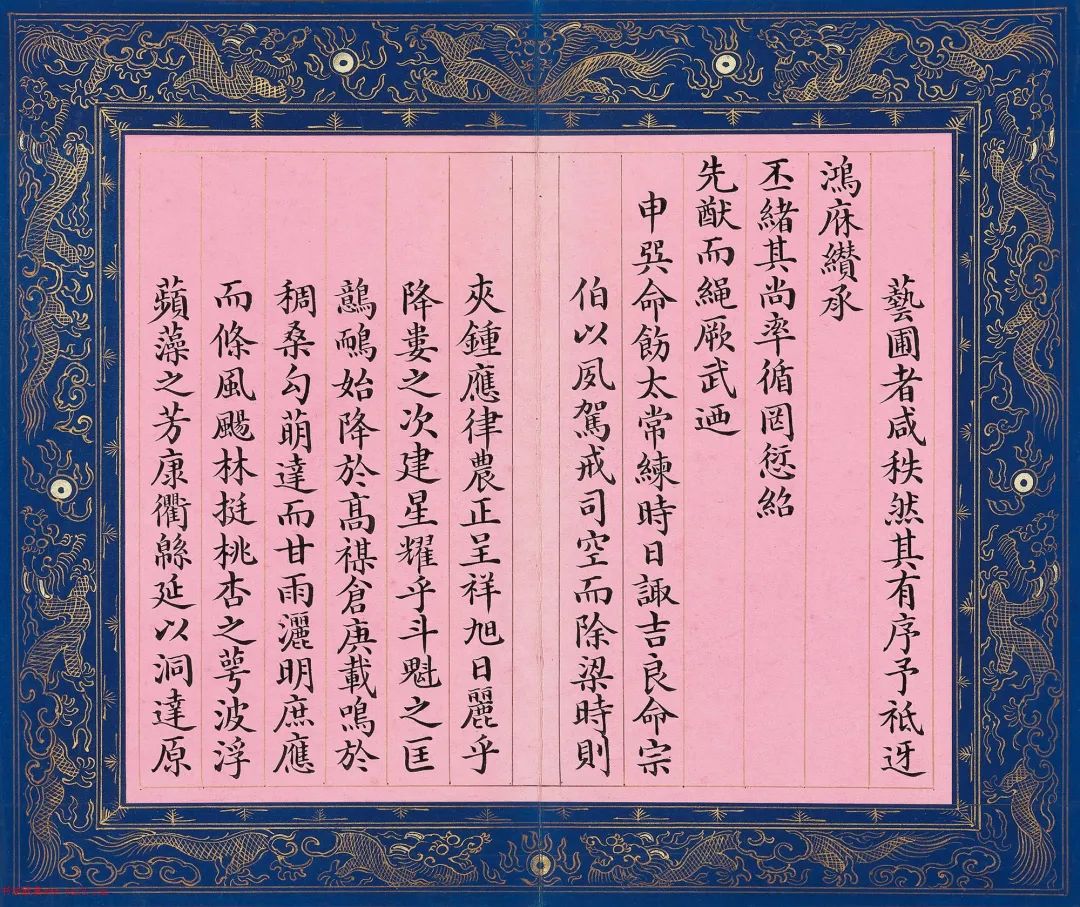 藝圃者咸秩然其有序予祗迓
鴻庥纘承
丕緒其尚率循罔愆紹
先猷而繩厥武迺
申巽命飭太常練時日諏吉良命宗
伯以夙駕戒司空而除梁時則
夾鍾應律農正呈祥旭日麗乎
降婁之次建星耀乎斗魁之匡
鷾鳾始降於高禖倉庚載鳴於
稠桑勾萌達而甘雨灑明庶應
而條風颺林挺桃杏之萼波浮
蘋藻之芳康衢緜延以洞達原